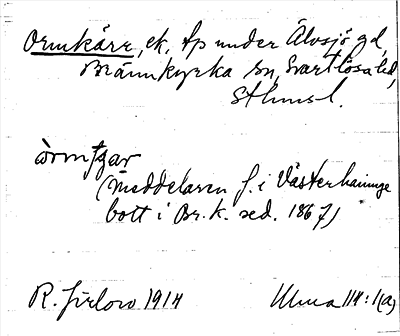 Ormkärr, ek, tp under Älvsjö gd,
Brännkyrka sn, Svartlösa hd,
Sthmsl.
(meddelaren f. i Västerhaninge
bott i Br.k. sed. 1867)
R. Jirlow 1914 Ulma 114:1(a)